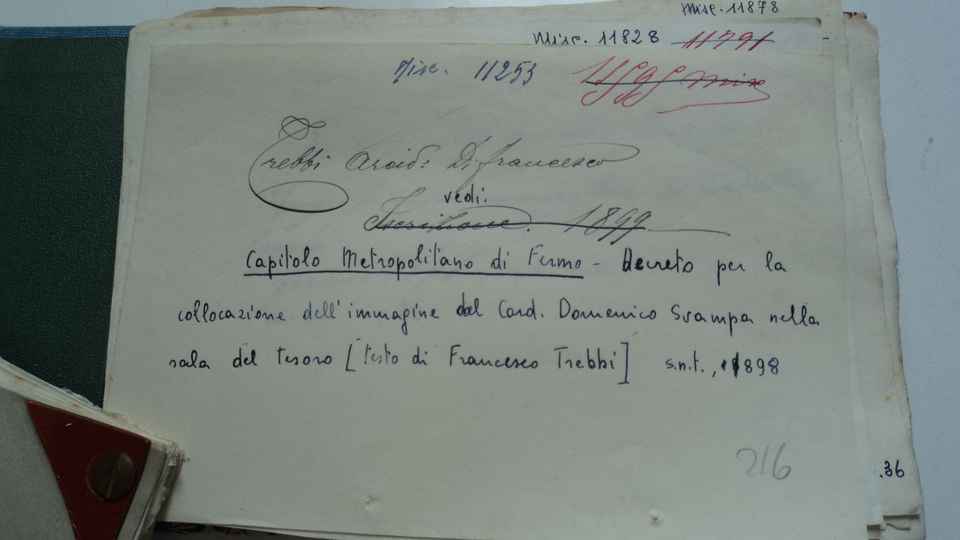 Misc. 11878
Misc. 11828 11791
Misc. 11253
Trebbi Arcid: Di francesco
vedi.
Iscrizione. 1899
Capitolo Metropolitano di Fermo - Decreto per la
collocazione dell'immagine del Card. Domenico Svampa nella
sala del tesoro [testo di Francesco Trebbi] s.n.t., 1898
216
.36